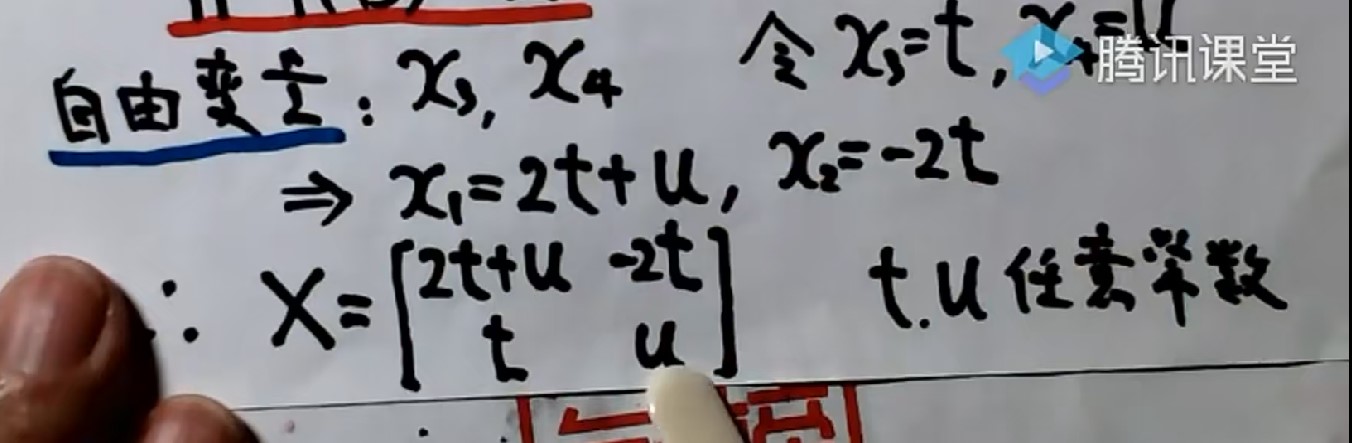 自由变量: x₃, x₄ 令 x₃=t, x₄=u
腾讯课堂
⇒ x₁=2t+u, x₂=-2t
∴ X=[2t+u -2t
t u] t.u 任意常数